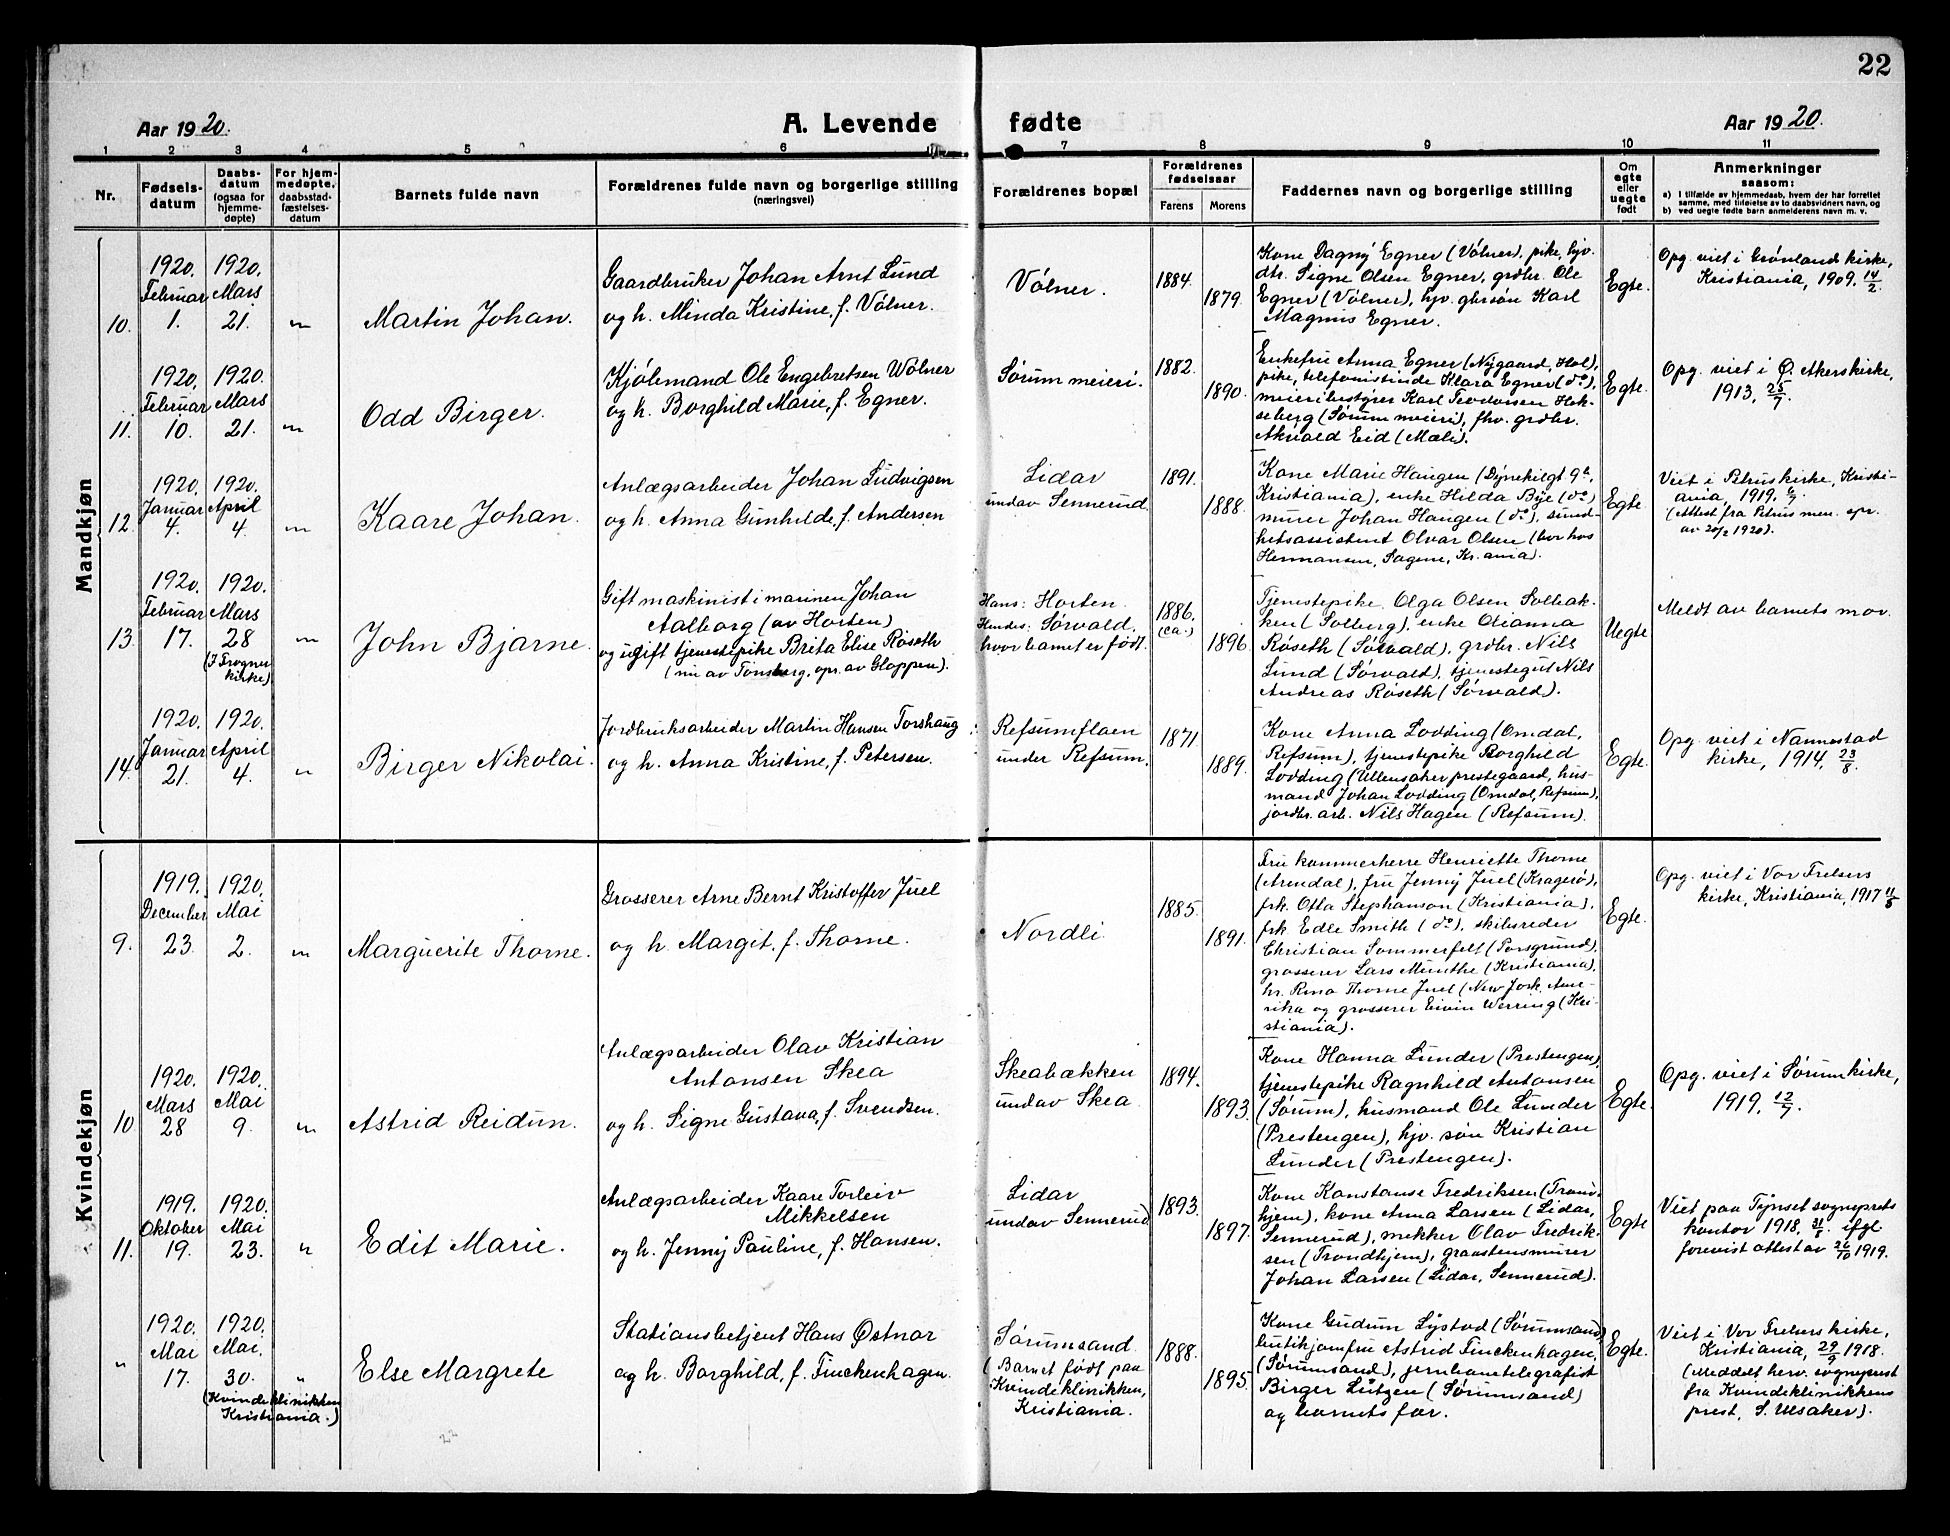 22
Aar 1920.
A. Levende fødte
Aar 1920.
1 2 3 4 5 6 7 8 9 10 11
Nr.
Fødsels-
datum
Daabs-
datum
(ogsaa for
hjemme-
døpte)
For hjem-
medøpte,
daabsstad-
fæstelses-
datum
Barnets fulde navn
Forældrenes fulde navn og borgerlige stilling
(næringsvei)
Forældrenes bopæl
Forældrenes
fødselsaar
Farens Morens
Faddernes navn og borgerlige stilling
Om
egte
eller
uegte
født
Anmerkninger
saasom:
a) I tilfælde av hjemmedaab, hvem der har forrettet
samme, med tilføielse av to daabsvidners navn, og
b) ved uegte fødte barn anmelderens navn m. v.
Mandkjøn
10.
1920.
Februar
1.
1920.
Mars
21.
"
Martin Johan.
Gaardbruker Johan Arnt Lund
og h. Minda Kristine, f. Vølner.
Vølner.
1884.
1879.
Kone Dagny Egner (Vølner), pike, hjv.
dtr. Signe Olsen Egner, grdbr. Ole
Egner (Vølner), hjv. gbrsøn Karl
Magnus Egner.
Egte.
Opg. viet i Grønland kirke,
Kristiania, 1909, 14/2.
11.
1920.
Februar
10.
1920.
Mars
21.
"
Odd Birger.
Kjølemand Ole Engebretsen Wølner
og h. Borghild Marie, f. Egner.
Sørum meieri.
1882.
1890.
Enkefru Anna Egner (Nygaard, Hol),
pike, telefonistinde Klara Egner (do),
meieribestyrer Karl Teodorsen Hok-
seberg (Sørum meieri), fhv. grdbr.
Akivald Eid (Mæli).
Egte.
Opg. viet i Ø. Akers kirke,
1913, 25/7.
12.
1920.
Januar
4.
1920.
April
4.
"
Kaare Johan.
Anlægsarbeider Johan Ludvigsen
og h. Anna Gunhilde, f. Andersen
Lidar
undav Sennerud.
1891.
1888.
Kone Marie Haugen (Dynekilgt 9a,
Kristiania), enke Hilda Bye (do)
murer Johan Haugen (do), sund-
hetsassistent Olvar Olsen (bor hos
Hermansen, Sagene, Kr.ania).
Egte.
Viet i Petrus kirke, Kristi-
ania, 1919,
(Attest fra Petrus men. spr.
av 20/2 1920).
13.
1920.
Februar
17.
1920.
Mars
28
(I Frogner
kirke)
"
John Bjarne.
Gift maskinist i marinen Johan
Aalborg (av Horten)
og ugift tjenestepike Brita Elise Røseth
(nu av Tønsberg, opr. av Gloppen).
Hans: Horten.
Hendes: Sørvald,
hvor barnet er født.
1886.
(ca.)
1896.
Tjenestepike Olga Olsen Solbak-
ken (Solberg), enke Oleanna
Røseth (Sørvald), grdbr. Nils
Lund (Sørvald), tjenestegut Nils
Andreas Røseth (Sørvald).
Uegte
Meldt av barnets mor.
14.
1920.
Januar
21.
1920.
April
4.
"
Birger Nikolai.
Jordbruksarbeider Martin Hansen Torshaug
og h. Anna Kristine, f. Petersen.
Refsumflaen
under Refsum.
1871
1889.
Kone Anna Lodding (Omdal,
Refsum), tjenestepike Borghild
Lodding (Ullensaker prestegaard, hus-
mand Johan Lodding (Omdal, Refsum),
jordbr. arb. Nils Hagen (Refsum).
Egte.
Opg. viet i Nannestad
kirke, 1914, 23/8.
Kvindekjøn
9.
1919.
December
23.
1920.
Mai
2.
"
Marguerite Thorne.
Grosserer Arne Bernt Kristoffer Juel
og h. Margit, f. Thorne.
Nordli
1885.
1891.
Fru kammerherre Henriette Thorne
(Arendal), fru Jenny Juel (Kragerø),
frk. Otta Stephanson (Kristiania),
frk. Edle Smith (do), skibsreder
Christian Sommerfelt (Porsgrund),
grosserer Lars Munthe (Kristiania),
hr. Rma Thorne Juel (New Jork, Ame-
rika og grosserer Eivin Werring (Kri-
stiania).
Egte.
Opg. viet i Vor Frelsers
kirke, Kristiania, 1917 11/8
10
1920.
Mars
28
1920.
Mai
9.
"
Astrid Reidun.
Anlægsarbeider Olav Kristian
Antonsen Skea
og h. Signe Gustava, f. Svendsen.
Skeabækken
undav Skea.
1894.
1893.
Kone Hanna Lunder (Prestengen),
tjenestepike Ragnhild Antonsen
(Sørum), husmand Ole Lunder
(Prestengen), hjv. søn Kristian
Lunder (Prestengen).
Egte.
Opg. viet i Sørum kirke,
1919, 12/7.
11.
1919.
Oktober
19.
1920.
Mai
23.
"
Edit Marie.
Anlægsarbeider Kaare Torleiv
Mikkelsen
og h. Jenny Pauline, f. Hansen.
Lidar
undav Sennerud
1893.
1897.
Kone Konstanse Fredriksen (Trond-
hjem), kone Anna Larsen (Lidar,
Sennerud), mekker Olav Fredrik-
sen (Trondhjem), graastensmurer
Johan Larsen (Lidar, Sennerud).
Egte
Viet paa Tynset sogneprets
kontor 1918, 31/8. ifgl
forevist attest av 26/10 1919.
"
1920.
Mai
17.
1920.
Mai.
30.
(Kvindeklinikken
Kristiania.)
"
Else Margrete
Stationsbetjent Hans Østnor
og h. Borghild, f. Finckenhagen.
Sørumsand
(Barnet født paa
Kvindeklinikken,
Kristiania.
1888.
1895.
Kone Gudrun Lystad (Sørumsand),
butikjomfru Astrid Finckenhagen,
(Sørumsand), jernbanetelegrafist
Birger Lützen (Sørumsand)
og barnets far.
Egte.
Viet i Vor Frelsers kirke,
Kristiania, 29/9 1918.
(Meddelt herv. sogneprest
fra Kvindeklinikkens
prest, S. Ulsaker).
22